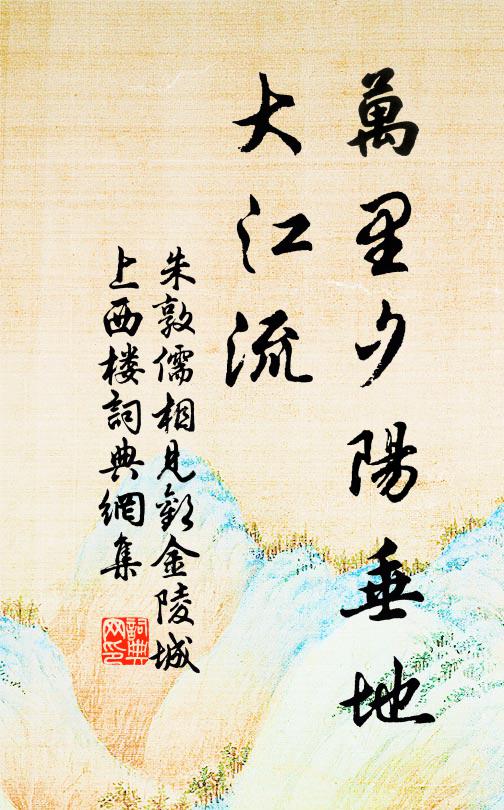 萬里夕陽垂地
大江流
朱敦儒相見歡金陵城
上西楼詞典網集
詞典
网印